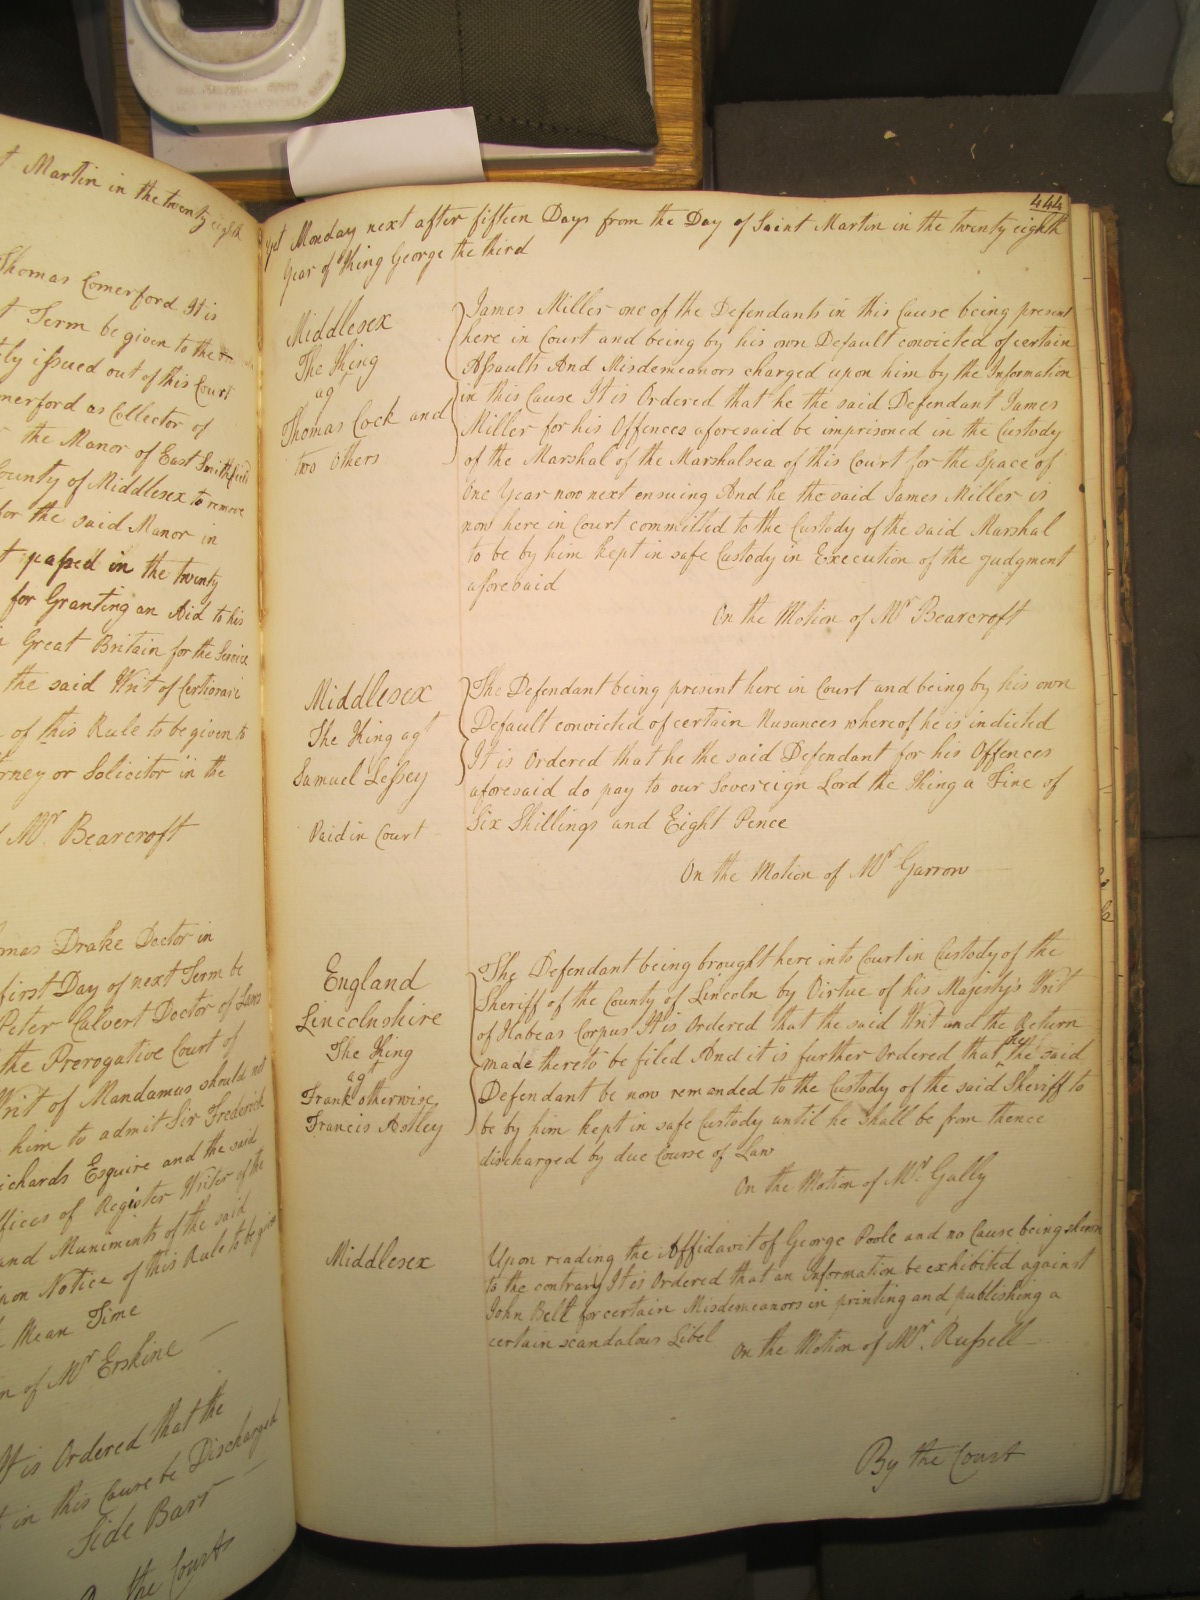 t Martin in the twenty eighth
Thomas Comerford It is
t Term be given to the
ly issued out of this Court
merford as Collector of
the Manor of East Smithfield
County of Middlesex to remove
for the said Manor in
t passed in the twenty
for Granting an Aid to his
Great Britain for the Service
the said Writ of Certiorari
of this Rule to be given to
rney or Solicitor in the
Mr. Bearcroft
mas Drake Doctor in
first Day of next Term be
Peter Calvert Doctor of Laws
the Prerogative Court of
Writ of Mandamus should not
him to admit Sir Frederick
ichards Esquire and the said
ffices of Register Writer of the
and Muniments of the said
pon Notice of this Rule to be given
Mean Time
n of Mr Erskine
It is Ordered that the
t in this Cause be Discharged
Side Barr
the Court
444
yet Monday next after fifteen Days from the Day of Saint Martin in the twenty eighth
Year of King George the third
Middlesex
The King
agt
Thomas Cock and
two others
James Miller one of the Defendants in this Cause being present
here in Court and being by his own Default convicted of certain
Assaults And Misdemeanors charged upon him by the Information
in this Cause It is Ordered that he the said Defendant James
Miller for his Offences aforesaid be imprisoned in the Custody
of the Marshal of the Marshalsea of this Court for the Space of
One Year now next ensuing And he the said James Miller is
now here in Court committed to the Custody of the said Marshal
to be by him kept in safe Custody in Execution of the Judgment
aforesaid
On the Motion of Mr Bearcroft
Middlesex
The King agt
Samuel Lessey
Paid in Court
The Defendant being present here in Court and being by his own
Default convicted of certain Nusances whereof he is indicted
It is Ordered that he the said Defendant for his Offences
aforesaid do pay to our Sovereign Lord the King a Fine of
Six Shillings and Eight Pence
On the Motion of Mr Garrow
England
Lincolnshire
The King
agt
Frank otherwise
Francis Astley
The Defendant being brought here into Court in Custody of the
Sheriff of the County of Lincoln by Virtue of his Majesty's Writ
of Habeas Corpus It is Ordered that the said Writ and the Return
made thereto be filed And it is further Ordered that the said
Defendant be now remanded to the Custody of the said Sheriff to
be by him kept in safe Custody until he shall be from thence
discharged by due Course of Law
On the Motion of Mr. Gally
Middlesex
Upon reading the Affidavit of George Poole and no Cause being shewn
to the contrary It is Ordered that an Information be exhibited against
John Bell for certain Misdemeanors in printing and publishing a
certain scandalous Libel
On the Motion of Mr. Russell
By the Court